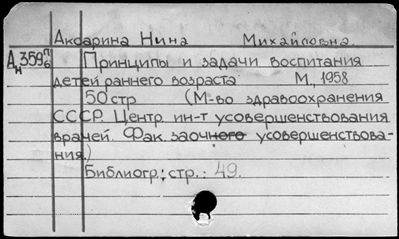 Аксарина Нина Михайловна.
Ан359/76 Принципы и задачи воспитания
детей раннего возраста М., 1958
50 стр (М-во здравоохранения
СССР. Центр ин-т усовершенствования
врачей. Фак. заочного усовершенствова-
ния.)
Библиогр.: стр.: 49.